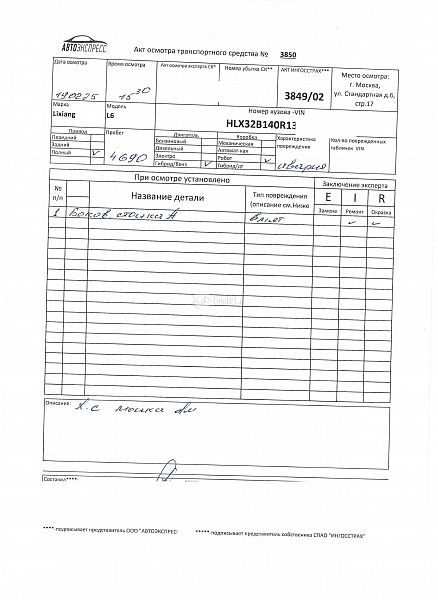 АВТОЭКСПРЕСС
Акт осмотра транспортного средства № 3850
Дата осмотра Время осмотра Акт осмотра эксперта СК* Номер убытка СК** АКТ ИНГОССТРАХ*** Место осмотра:
г. Москва,
ул. Стандартная д.6,
стр.17
190225 15 30 3849/02
Марка Модель Номер кузова -VIN
Lixiang L6 HLX32B140R13
Привод Пробег Двигатель Коробка Характеристика повреждения Кол-во поврежденных табличек VIN
Передний Бензиновый Механическая
Задний Дизельный Автомат-кая
Полный v 4690 Электро Робот v авария
Гибрид/Бенз v Гибрид/дт
При осмотре установлено Заключение эксперта
№ п/п Название детали Тип повреждения (описание см.Ниже E I R
Замена Ремонт Окраска
1 Боков. стойка А v v
Описание:
Составил****:
****-подписывает представитель ООО "АВТОЭКСПРЕС" *****-подписывает представитель собственника СПАО "ИНГОССТРАХ"